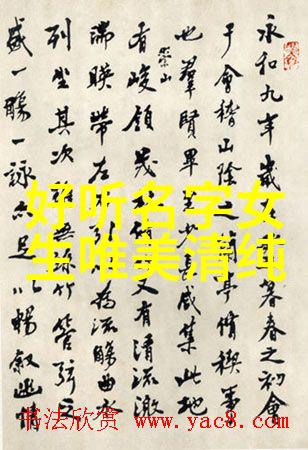 永和九年歲暮春之初會
于會稽山陰之蘭亭脩稧事
也羣賢畢至少長咸集此地
有崇山峻領茂又有清流激
湍暎帶左引為流觴曲水
列坐其次無竹管弦之
盛一觴一詠亦足以暢敘幽情
好听名字女
生唯美清纯
书法欣赏 www.yac8.com